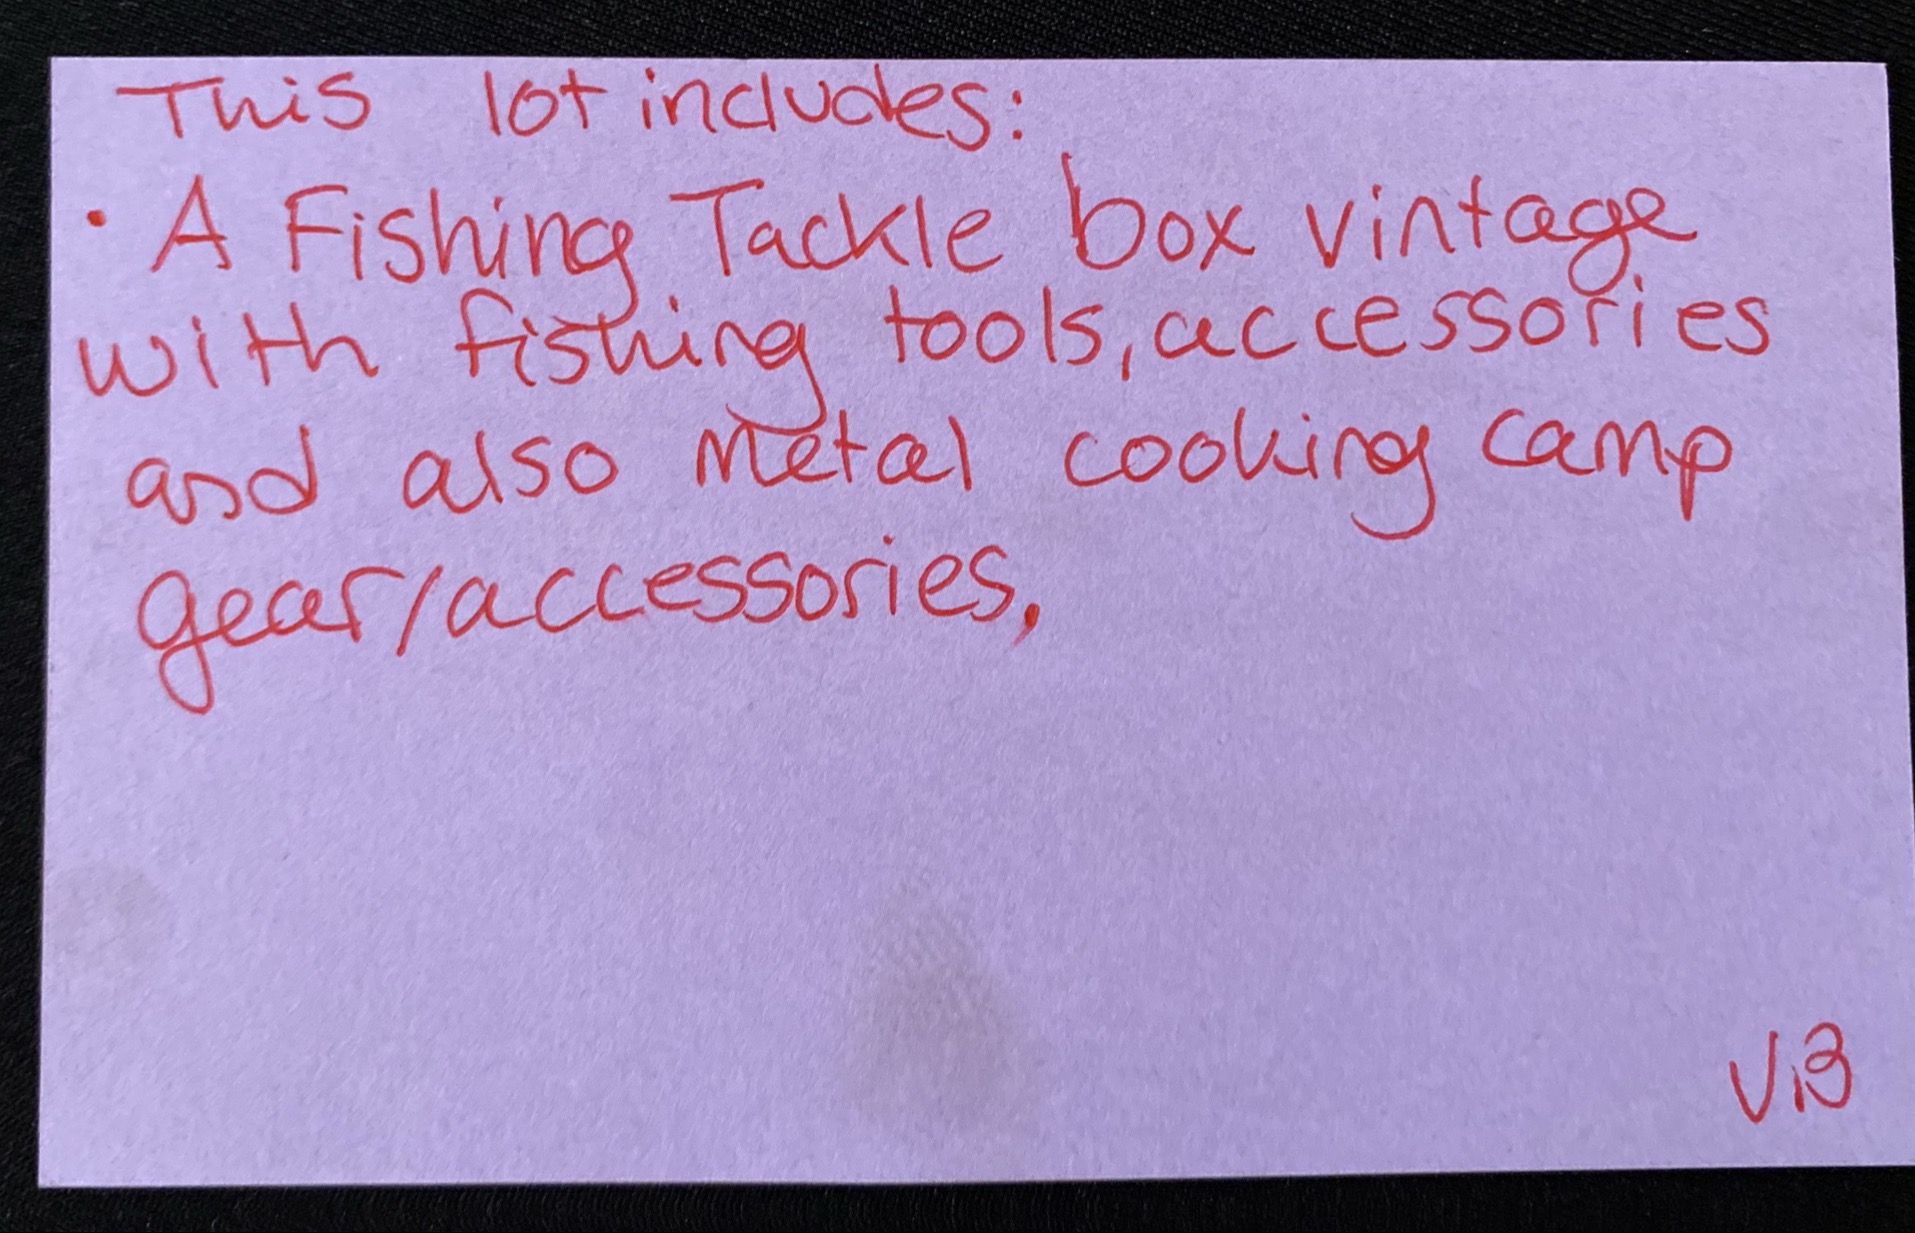 This lot includes:
• A Fishing Tackle box vintage
with fishing tools, accessories
and also Metal cooking camp
gear/accessories.